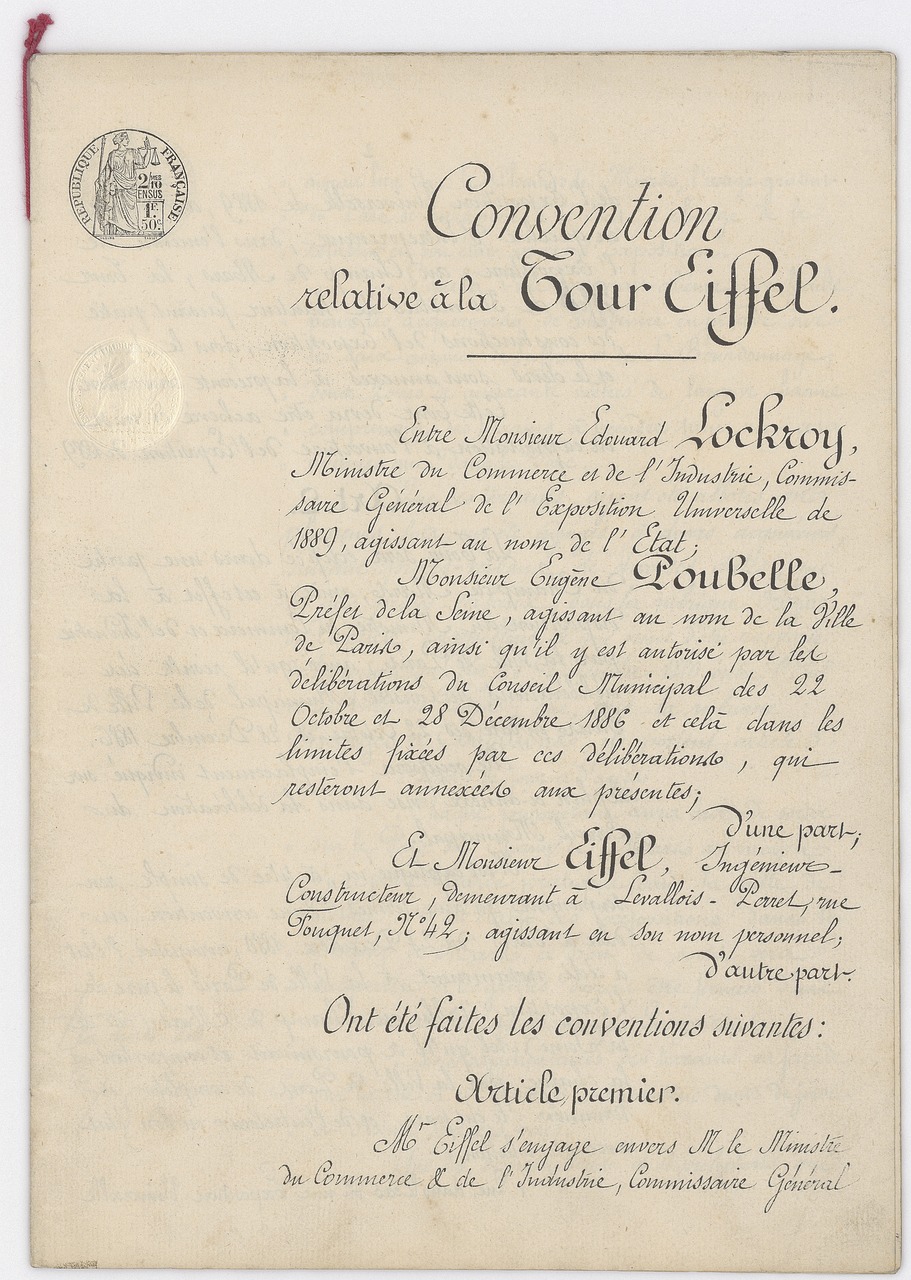 RÉPUBLIQUE FRANÇAISE
2/10
EN SUS
1F.
50c.
Convention
relative à la Tour Eiffel.
Entre Monsieur Edouard Lockroy,
Ministre du Commerce et de l'Industrie, Commis-
saire Général de l'Exposition Universelle de
1889, agissant au nom de l'Etat;
Monsieur Eugène Poubelle,
Préfet de la Seine, agissant au nom de la Ville
de Paris, ainsi qu'il y est autorisé par les
délibérations du Conseil Municipal des 22
Octobre et 28 Décembre 1886 et celà dans les
limites fixées par ces délibérations, qui
resteront annexées aux présentes;
d'une part;
Et Monsieur Eiffel, Ingénieur-
Constructeur, demeurant à Levallois-Perret, rue
Fouquet, N° 42; agissant en son nom personnel;
d'autre part.
Ont été faites les conventions suivantes:
Article premier.
Mr Eiffel s'engage envers M le Ministre
du Commerce & de l'Industrie, Commissaire Général